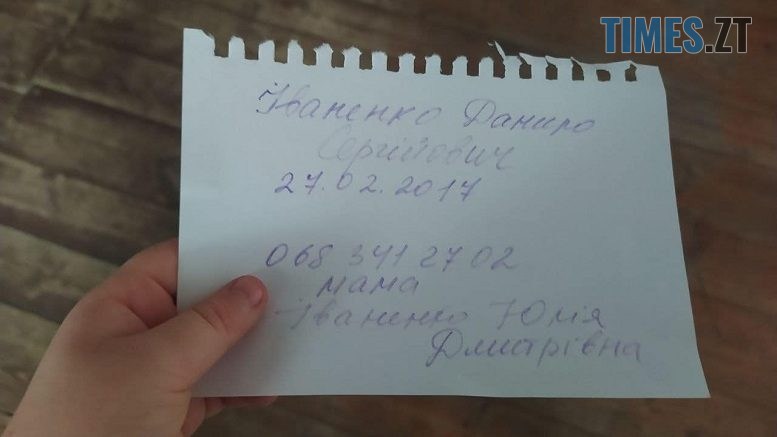 TIMES.ZT
Іваненко Данило
Сергійович
27.02.2017
068 341 27 02
мама
Іваненко Юлія
Дмитрівна